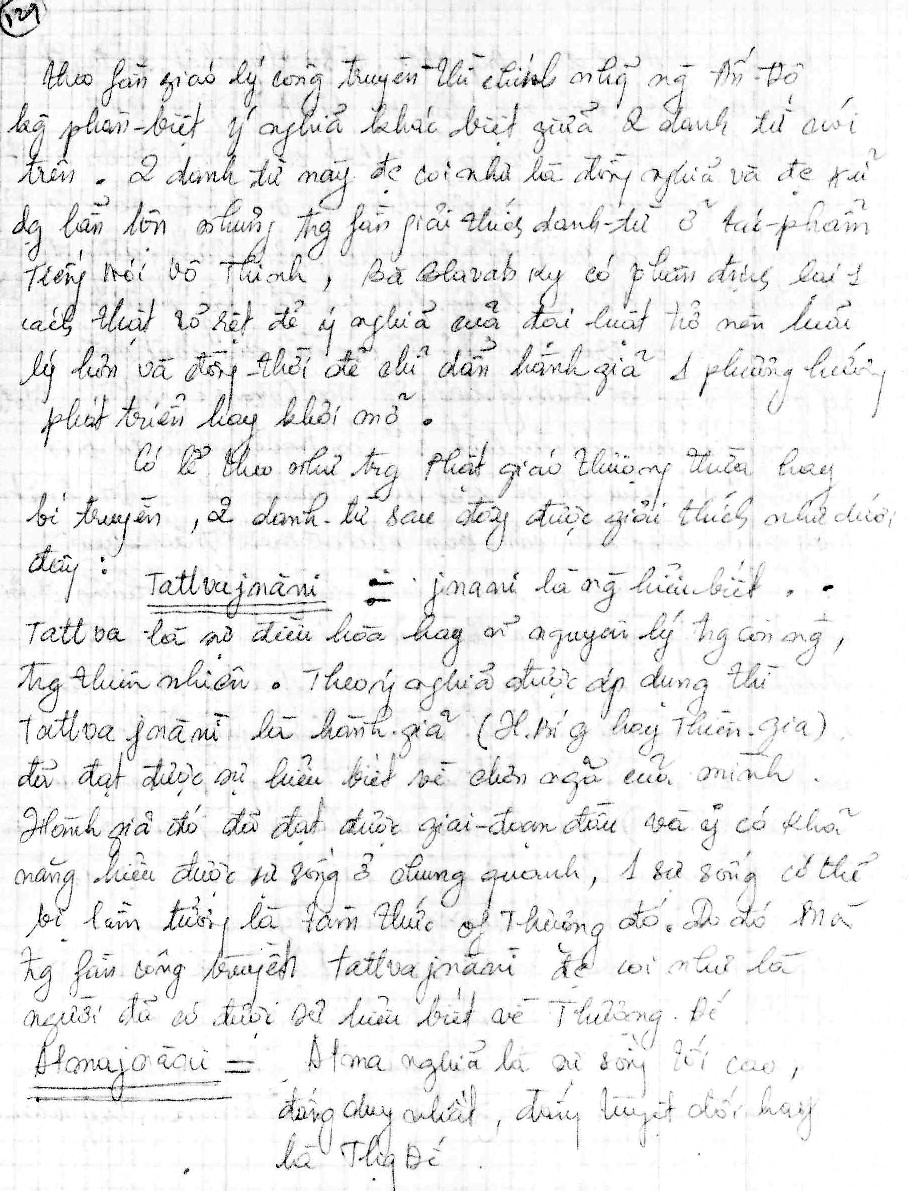 129
theo fần giáo lý công truyền thì chính những ng Ấn-Độ
kg phân-biệt ý nghĩa khác biệt giữa 2 danh từ nói
trên. 2 danh từ này đc coi như là đồng nghĩa và đc xử
dg lẫn lộn nhưng trg fần giải thích danh-từ ở tác-phẩm
Tiếng Nói Vô Thinh, Bà Blavatsky có phân định lại 1
cách thật rõ rệt để ý nghĩa của đại luật trở nên luân
lý hơn và đồng-thời để chỉ dẫn hành giả 1 phương hướng
phát triển hay khởi mở.
Có lẽ theo như trg Phật giáo thượng thừa hay
bí truyền, 2 danh-từ sau đây được giải thích như dưới
đây:
Tattvajnāni = jnani là ng hiểu biết..
Tattva là sự điều hòa hay nguyên lý trg con ng,
trg thiên nhiên. Theo ý nghĩa được áp dụng thì
Tattvajnāni là hành-giả (H. hay Thiền-gia)
đã đạt được sự hiểu biết về chơn ngã của mình.
Hành giả đó đã đạt được giai-đoạn đầu và y có khả
năng hiểu được sự sống ở chung quanh, 1 sự sống có thể
bị lầm tưởng là tâm thức of Thượng đó. Do đó mà
trg fần công truyền tattvajnāni đc coi như là
người đã có được sự hiểu biết về Thượng-Đế
Atmajnāni = Atma nghĩa là sự sống tối cao,
đấng duy nhất, đấng tuyệt đối hay
là Thg Đế.